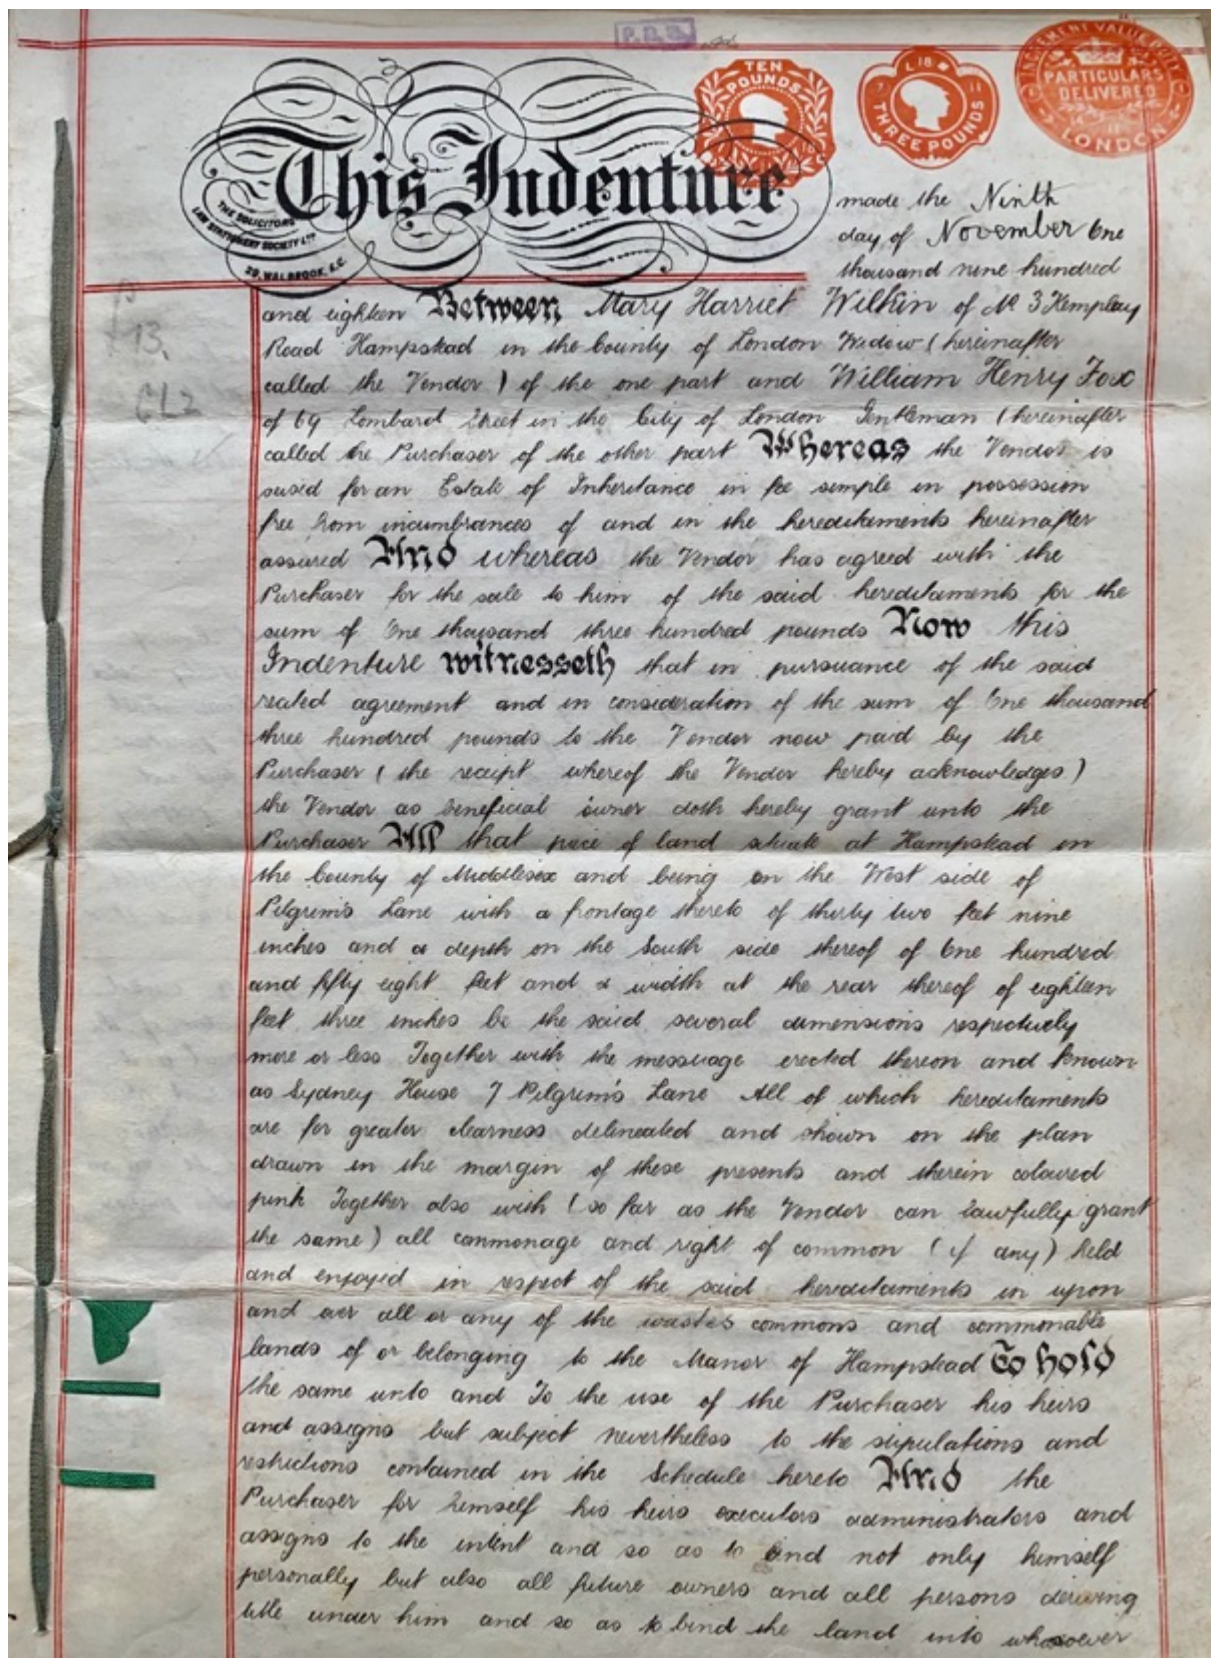 P.D.B.
TEN POUNDS
L 18
7 11
THREE POUNDS
INCREMENT VALUE DUTY
PARTICULARS
DELIVERED
LONDON
This Indenture
THE SOLICITORS
LAW STATIONERY SOCIETY LTD
29, WALBROOK, E.C.
made the Ninth
day of November One
thousand nine hundred
and eighteen Between Mary Harriet Wilkin of No 3 Kemplay
Road Hampstead in the County of London Widow (hereinafter
called the Vendor) of the one part and William Henry Fox
of 69 Lombard Street in the City of London Gentleman (hereinafter
called the Purchaser of the other part Whereas the Vendor is
seised for an Estate of Inheritance in fee simple in possession
free from incumbrances of and in the hereditaments hereinafter
assured And whereas the Vendor has agreed with the
Purchaser for the sale to him of the said hereditaments for the
sum of One thousand three hundred pounds Now this
Indenture witnesseth that in pursuance of the said
recited agreement and in consideration of the sum of One thousand
three hundred pounds to the Vendor now paid by the
Purchaser (the receipt whereof the Vendor hereby acknowledges)
the Vendor as beneficial owner doth hereby grant unto the
Purchaser All that piece of land situate at Hampstead in
the County of Middlesex and being on the West side of
Pilgrim's Lane with a frontage thereto of thirty two feet nine
inches and a depth on the South side thereof of One hundred
and fifty eight feet and a width at the rear thereof of eighteen
feet three inches be the said several dimensions respectively
more or less Together with the messuage erected thereon and known
as Sydney House 7 Pilgrim's Lane All of which hereditaments
are for greater clearness delineated and shown on the plan
drawn in the margin of these presents and therein coloured
pink Together also with (so far as the Vendor can lawfully grant
the same) all commonage and right of common (if any) held
and enjoyed in respect of the said hereditaments in upon
and over all or any of the wastes commons and commonable
lands of or belonging to the Manor of Hampstead To hold
the same unto and To the use of the Purchaser his heirs
and assigns but subject nevertheless to the stipulations and
restrictions contained in the Schedule hereto And the
Purchaser for himself his heirs executors administrators and
assigns to the intent and so as to bind not only himself
personally but also all future owners and all persons deriving
title under him and so as to bind the land into whosoever
13.
CL2